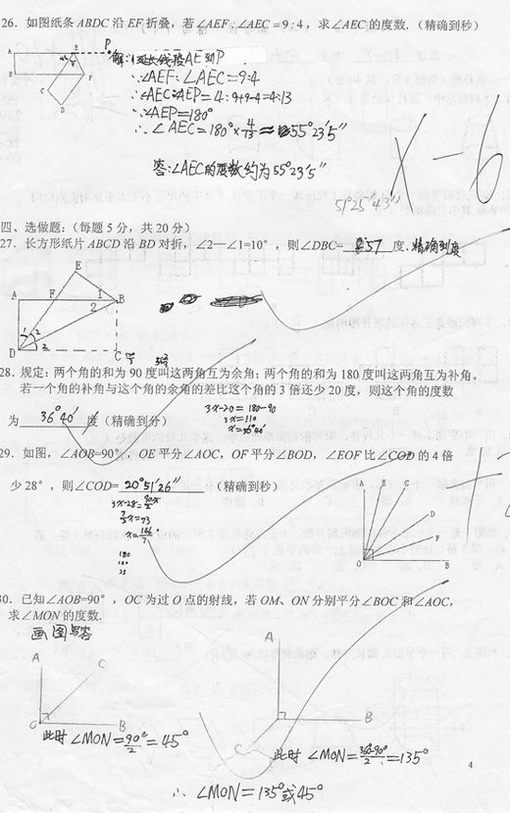 26. 如图纸条 ABDC 沿 EF 折叠，若∠AEF：∠AEC＝9：4，求∠AEC 的度数.（精确到秒）
A
E
P
B
F
C
D
解：延长线段AE到P
∵∠AEF：∠AEC＝9:4
∴∠AEC:∠AEP＝4：9+9-4＝4:13
∵∠AEP＝180°
∴∠AEC＝180°×4/13≈55°23′5″
答：∠AEC的度数约为55°23′5″
51°25′43″
X－6
四、选做题：（每题 5 分，共 20 分）
27. 长方形纸片 ABCD 沿 BD 对折，∠2—∠1=10°，则∠DBC= 57 度. 精确到度
E
A
F
1
B
2
1
2
D
C
28. 规定：两个角的和为 90 度叫这两角互为余角；两个角的和为 180 度叫这两角互为补角。
若一个角的补角与这个角的余角的差比这个角的 3 倍还少 20 度，则这个角的度数
为 36°40′ 度（精确到分）
3x-20＝180-90
3x＝110
x＝36°40′
29. 如图，∠AOB=90°，OE 平分∠AOC，OF 平分∠BOD，∠EOF 比∠COD 的 4 倍
少 28°，则∠COD= 20°51′26″ （精确到秒）
7/2x＝73
x＝146/7°
180
A
E
C
D
F
O
B
30. 已知∠AOB=90°，OC 为过 O 点的射线，若 OM、ON 分别平分∠BOC 和∠AOC，
求∠MON 的度数.
画图写答
A
C
O
B
此时 ∠MON＝90°/2＝45°
A
B
C
此时 ∠MON＝360-90°/2＝135°
∴ ∠MON＝135°或45°
4